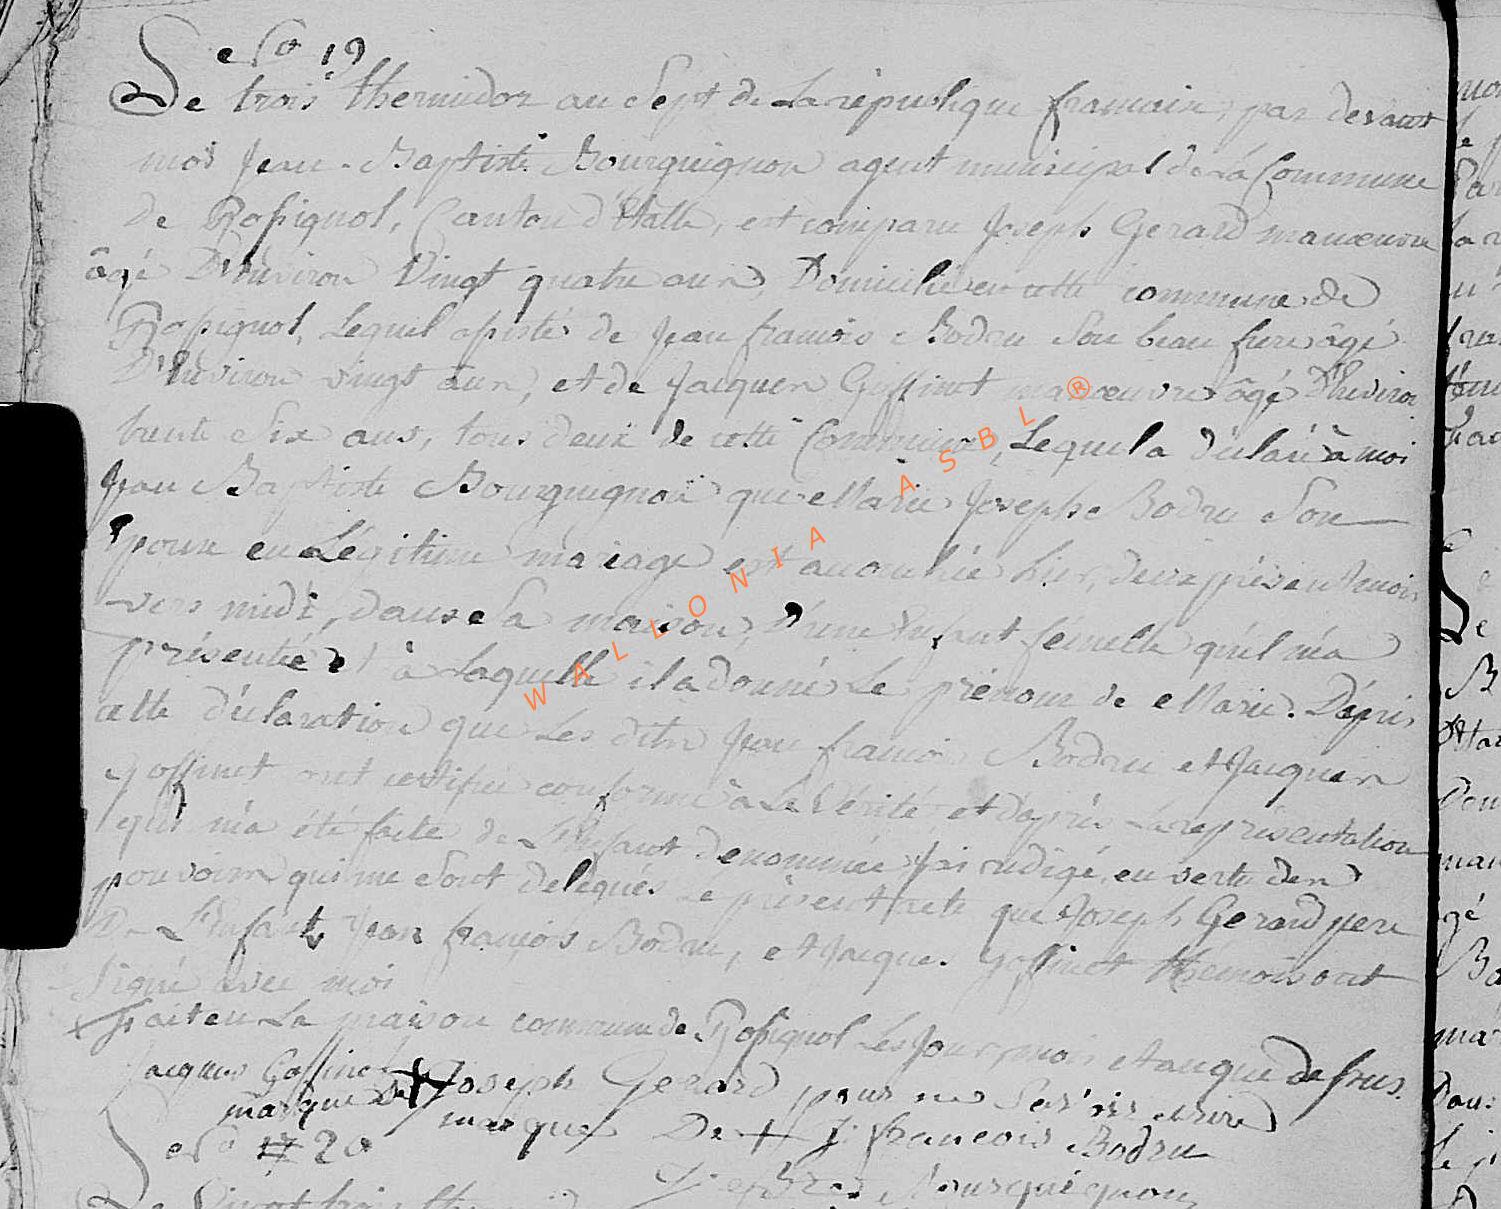 Le No 19
Le trois thermidor an Sept de La république francaise, par devant
moi Jean-Baptiste Bourguignon agent municipal de la Commune
de Rossignol, Canton d'Étalle, est comparu Joseph Gerard manœuvre
âgé D'Environ Vingt quatre ans, Domicilié en cette commune de
Rossignol, Lequel assisté de Jean francois Bodru Son beau frere âgé
D'Environ vingt ans, et de Jacques Goffinet manœuvre âgé D'Environ
trente Six ans, tous deux de cette Commune, Lequel a déclaré à moi
Jean Baptiste Bourguignon que Marie Joseph Bodru Son
Epouse en Légitime mariage est accouchée hier, du présent mois
vers midi, dans Sa maison, D'une Enfant femelle qu'il m'a
présentée et à Laquelle il a donné Le prénom de Marie. D'après
cette déclaration que Les dits Jean francois Bodru et Jacques
Goffinet ont certifié conforme à La Vérité, et d'après La représentation
qui m'a été faite de L'Enfant denommée J'ai rédigé, en vertu des
pouvoirs qui me Sont délégués Le présent acte que Joseph Gerard pere
De L'Enfant, Jean francois Bodru, et Jacques Goffinet témoins ont
Signé avec moi
Fait en La maison commune de Rossignol Les Jour, mois et an que dessus.
Jacques Goffinet Joseph Gerard pour ne Savoir ecrire
marque De + marque De + J: francois Bodru
Le No 20 Bourguignon
Le Vingt trois
WALLONIA ASBL ®